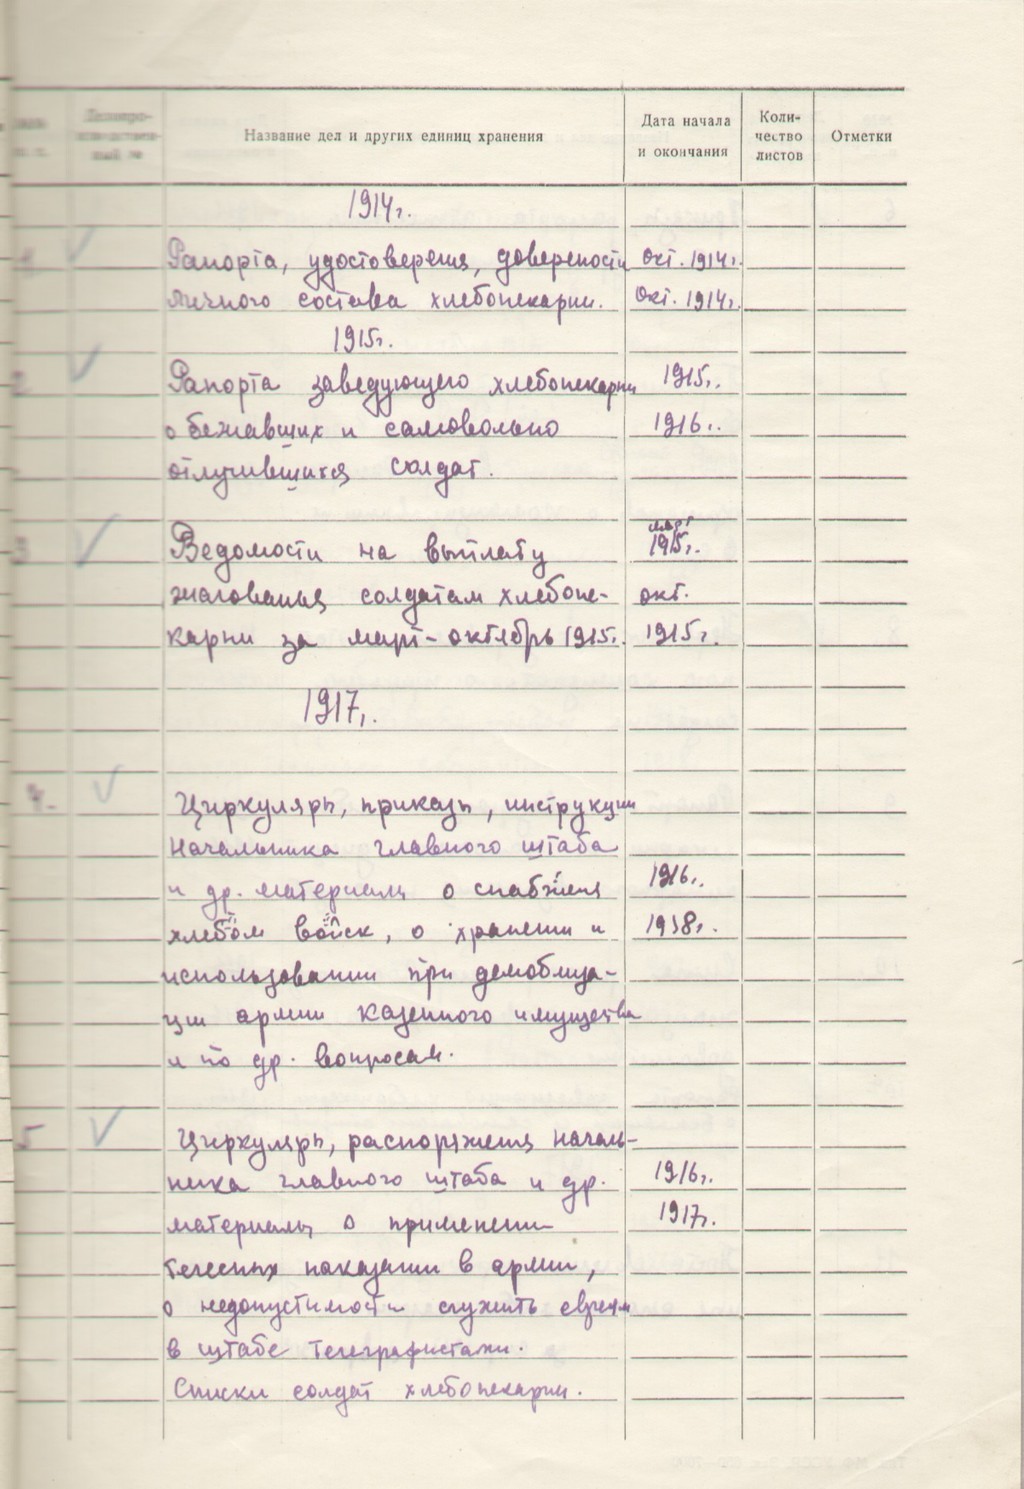 Делопро-
изводствен-
ный №
Название дел и других единиц хранения
Дата начала
и окончания
Коли-
чество
листов
Отметки
1914г.
Рапорта, удостоверения, доверености окт. 1914г.
личного состава хлебопекарни. окт. 1914г.
1915г.
2 Рапорта заведующего хлебопекарни 1915г.
о бежавших и самовольно 1916г.
отлучившихся солдат.
3 Ведомости на выплату март 1915г.
жалования солдатам хлебопе- окт.
карни за март-октябрь 1915г. 1915г.
1917г.
4. Циркуляры, приказы, инструкции
начальника главного штаба
и др. материалы о снабжении 1916г.
хлебом войск, о хранении и 1938г.
использовании при демобилиза-
ции армии казенного имущества
и по др. вопросам.
5 Циркуляры, распоряжения началь-
ника главного штаба и др. 1916г.
материалы о применении 1917г.
телесных наказаний в армии,
о недопустимости служить евреям
в штабе телеграфистами.
Списки солдат хлебопекарни.